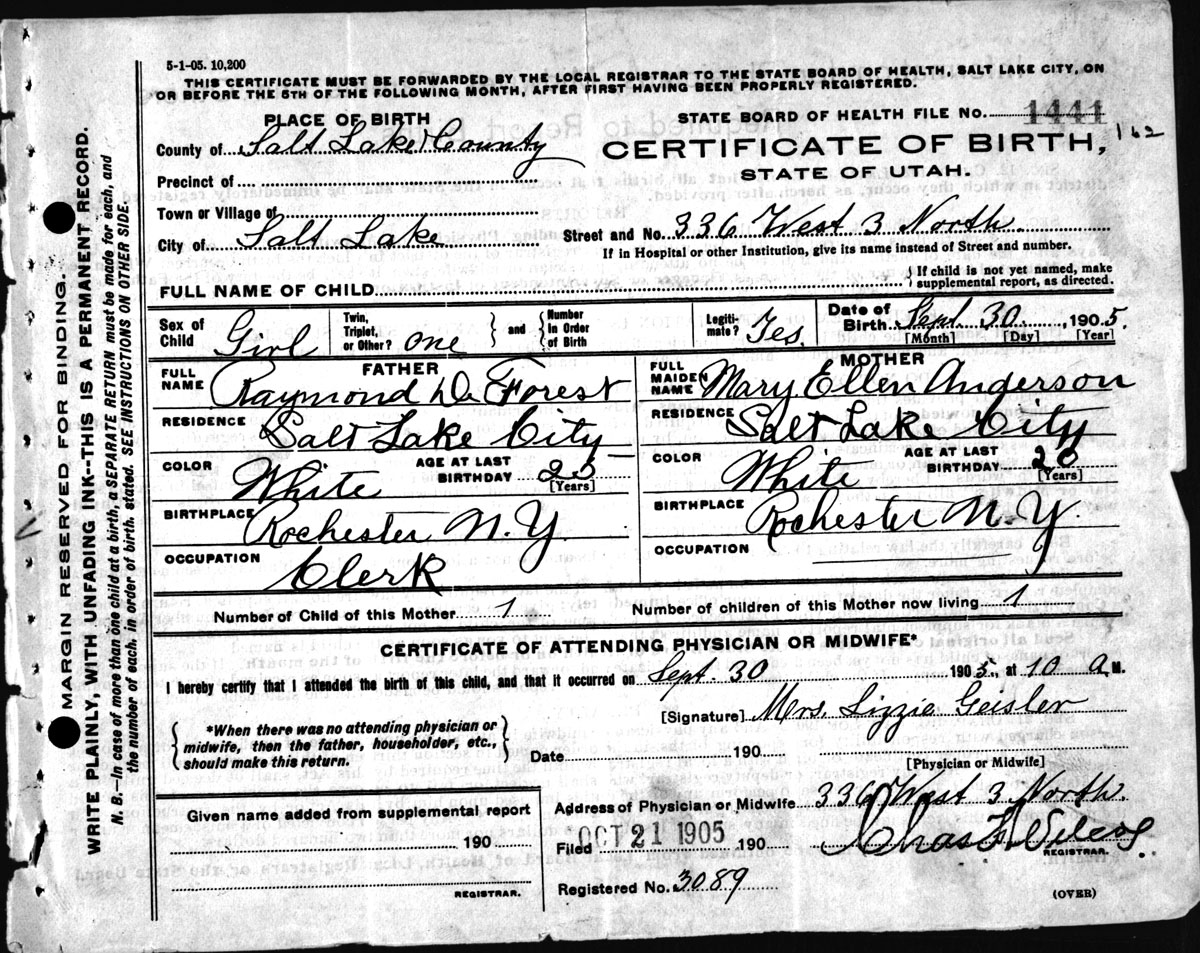 5-1-05. 10,200
THIS CERTIFICATE MUST BE FORWARDED BY THE LOCAL REGISTRAR TO THE STATE BOARD OF HEALTH, SALT LAKE CITY, ON
OR BEFORE THE 5TH OF THE FOLLOWING MONTH, AFTER FIRST HAVING BEEN PROPERLY REGISTERED.
PLACE OF BIRTH
STATE BOARD OF HEALTH FILE NO. 1441
162
County of Salt Lake County
CERTIFICATE OF BIRTH,
STATE OF UTAH.
Precinct of
Town or Village of
City of Salt Lake
Street and No. 336 West 3 North.
If in Hospital or other Institution, give its name instead of Street and number.
FULL NAME OF CHILD
{ If child is not yet named, make
supplemental report, as directed.
Sex of Child Girl
Twin, Triplet, or Other? one } and { Number In Order of Birth
Legiti- mate? Yes.
Date of Birth Sept. 30, 1905.
[Month] [Day] [Year]
FATHER
FULL NAME Raymond De Forest
RESIDENCE Salt Lake City
COLOR White
AGE AT LAST BIRTHDAY 20
[Years]
BIRTHPLACE Rochester N.Y.
OCCUPATION Clerk
MOTHER
FULL MAIDEN NAME Mary Ellen Anderson
RESIDENCE Salt Lake City
COLOR White
AGE AT LAST BIRTHDAY 20
[Years]
BIRTHPLACE Rochester N.Y.
OCCUPATION
Number of Child of this Mother 1
Number of children of this Mother now living 1
CERTIFICATE OF ATTENDING PHYSICIAN OR MIDWIFE*
I hereby certify that I attended the birth of this child, and that it occurred on Sept. 30 1905, at 10 A.M.
[Signature] Mrs. Lizzie Geisler
{ *When there was no attending physician or
midwife, then the father, householder, etc.,
should make this return. }
Date 190
[Physician or Midwife]
Given name added from supplemental report
190
REGISTRAR.
Address of Physician or Midwife 336 West 3 North.
Filed OCT 21 1905 190
Chas
REGISTRAR.
Registered No. 3089
(OVER)
MARGIN RESERVED FOR BINDING.
WRITE PLAINLY, WITH UNFADING INK--THIS IS A PERMANENT RECORD.
N. B.--In case of more than one child at a birth, a SEPARATE RETURN must be made for each, and
the number of each, in order of birth, stated. SEE INSTRUCTIONS ON OTHER SIDE.